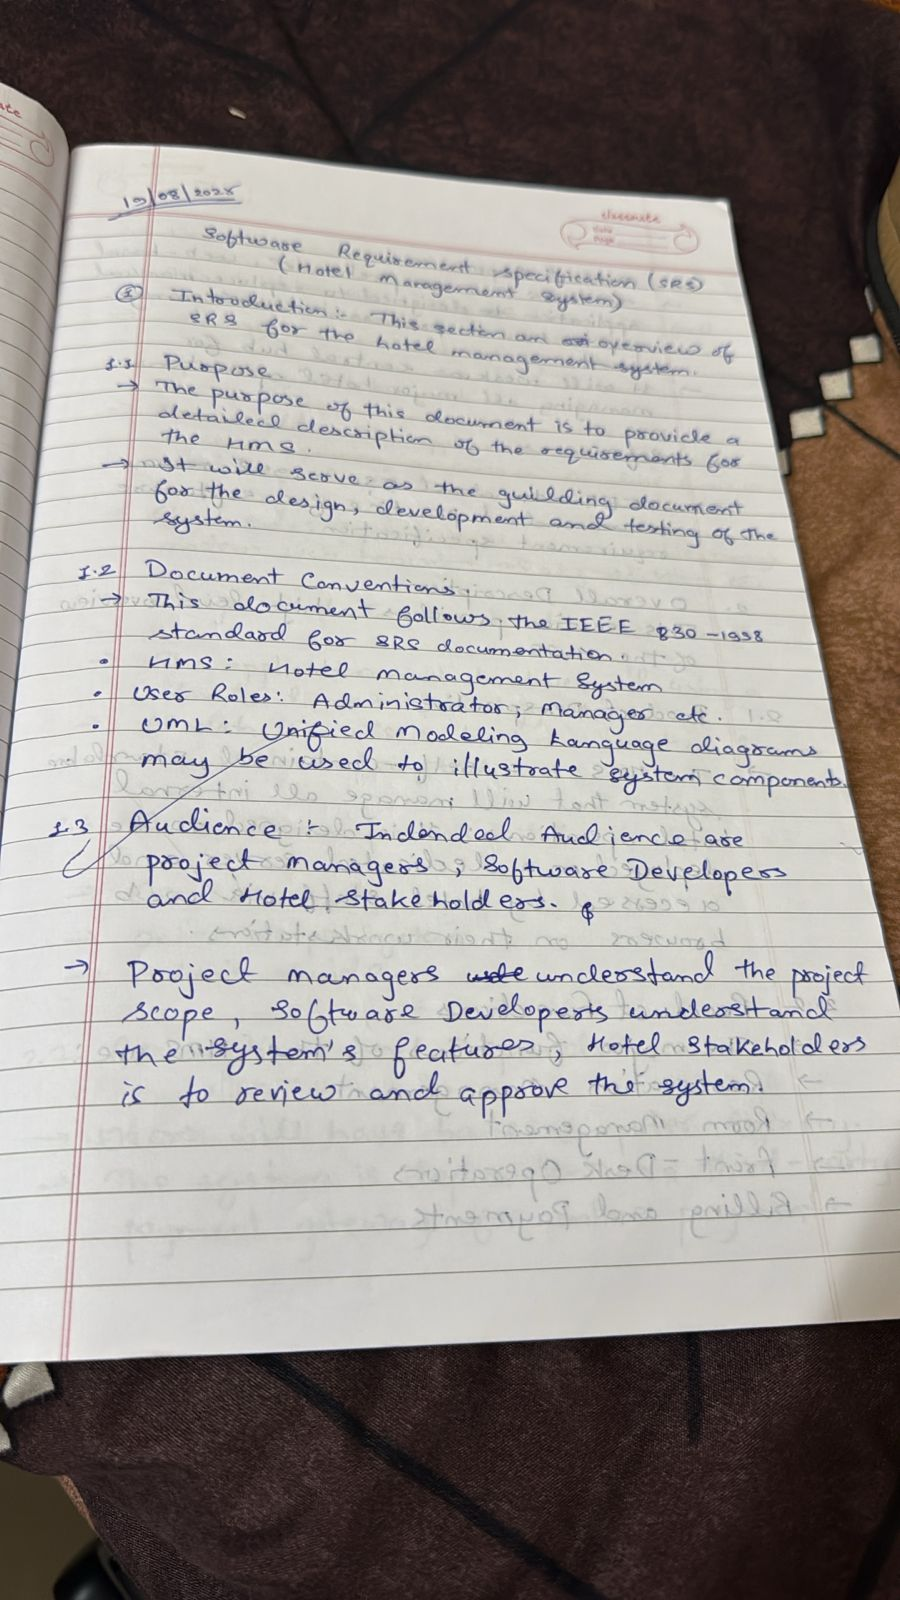 19/08/2025
classmate
Date
Page
Software Requirement specification (SRS)
(Hotel Management System)
① Introduction :- This section an overview of
SRS for the hotel management system.
1.1 Purpose
→ The purpose of this document is to provide a
detailed description of the requirements for
the HMS.
→ It will serve as the guilding document
for the design, development and testing of the
system.
1.2 Document Conventions.
→ This document follows the IEEE 830-1998
standard for SRS documentation.
• HMS: Hotel Management System
• User Roles: Administrator, Manager etc.
• UML: Unified Modeling Language diagrams
may be used to illustrate system components.
1.3 Audience :- Indended Audience are
project managers, Software Developers
and Hotel Stakeholders.
→ Project managers understand the project
scope, Software Developers understand
the system's features, Hotel Stakeholders
is to review and approve the system.